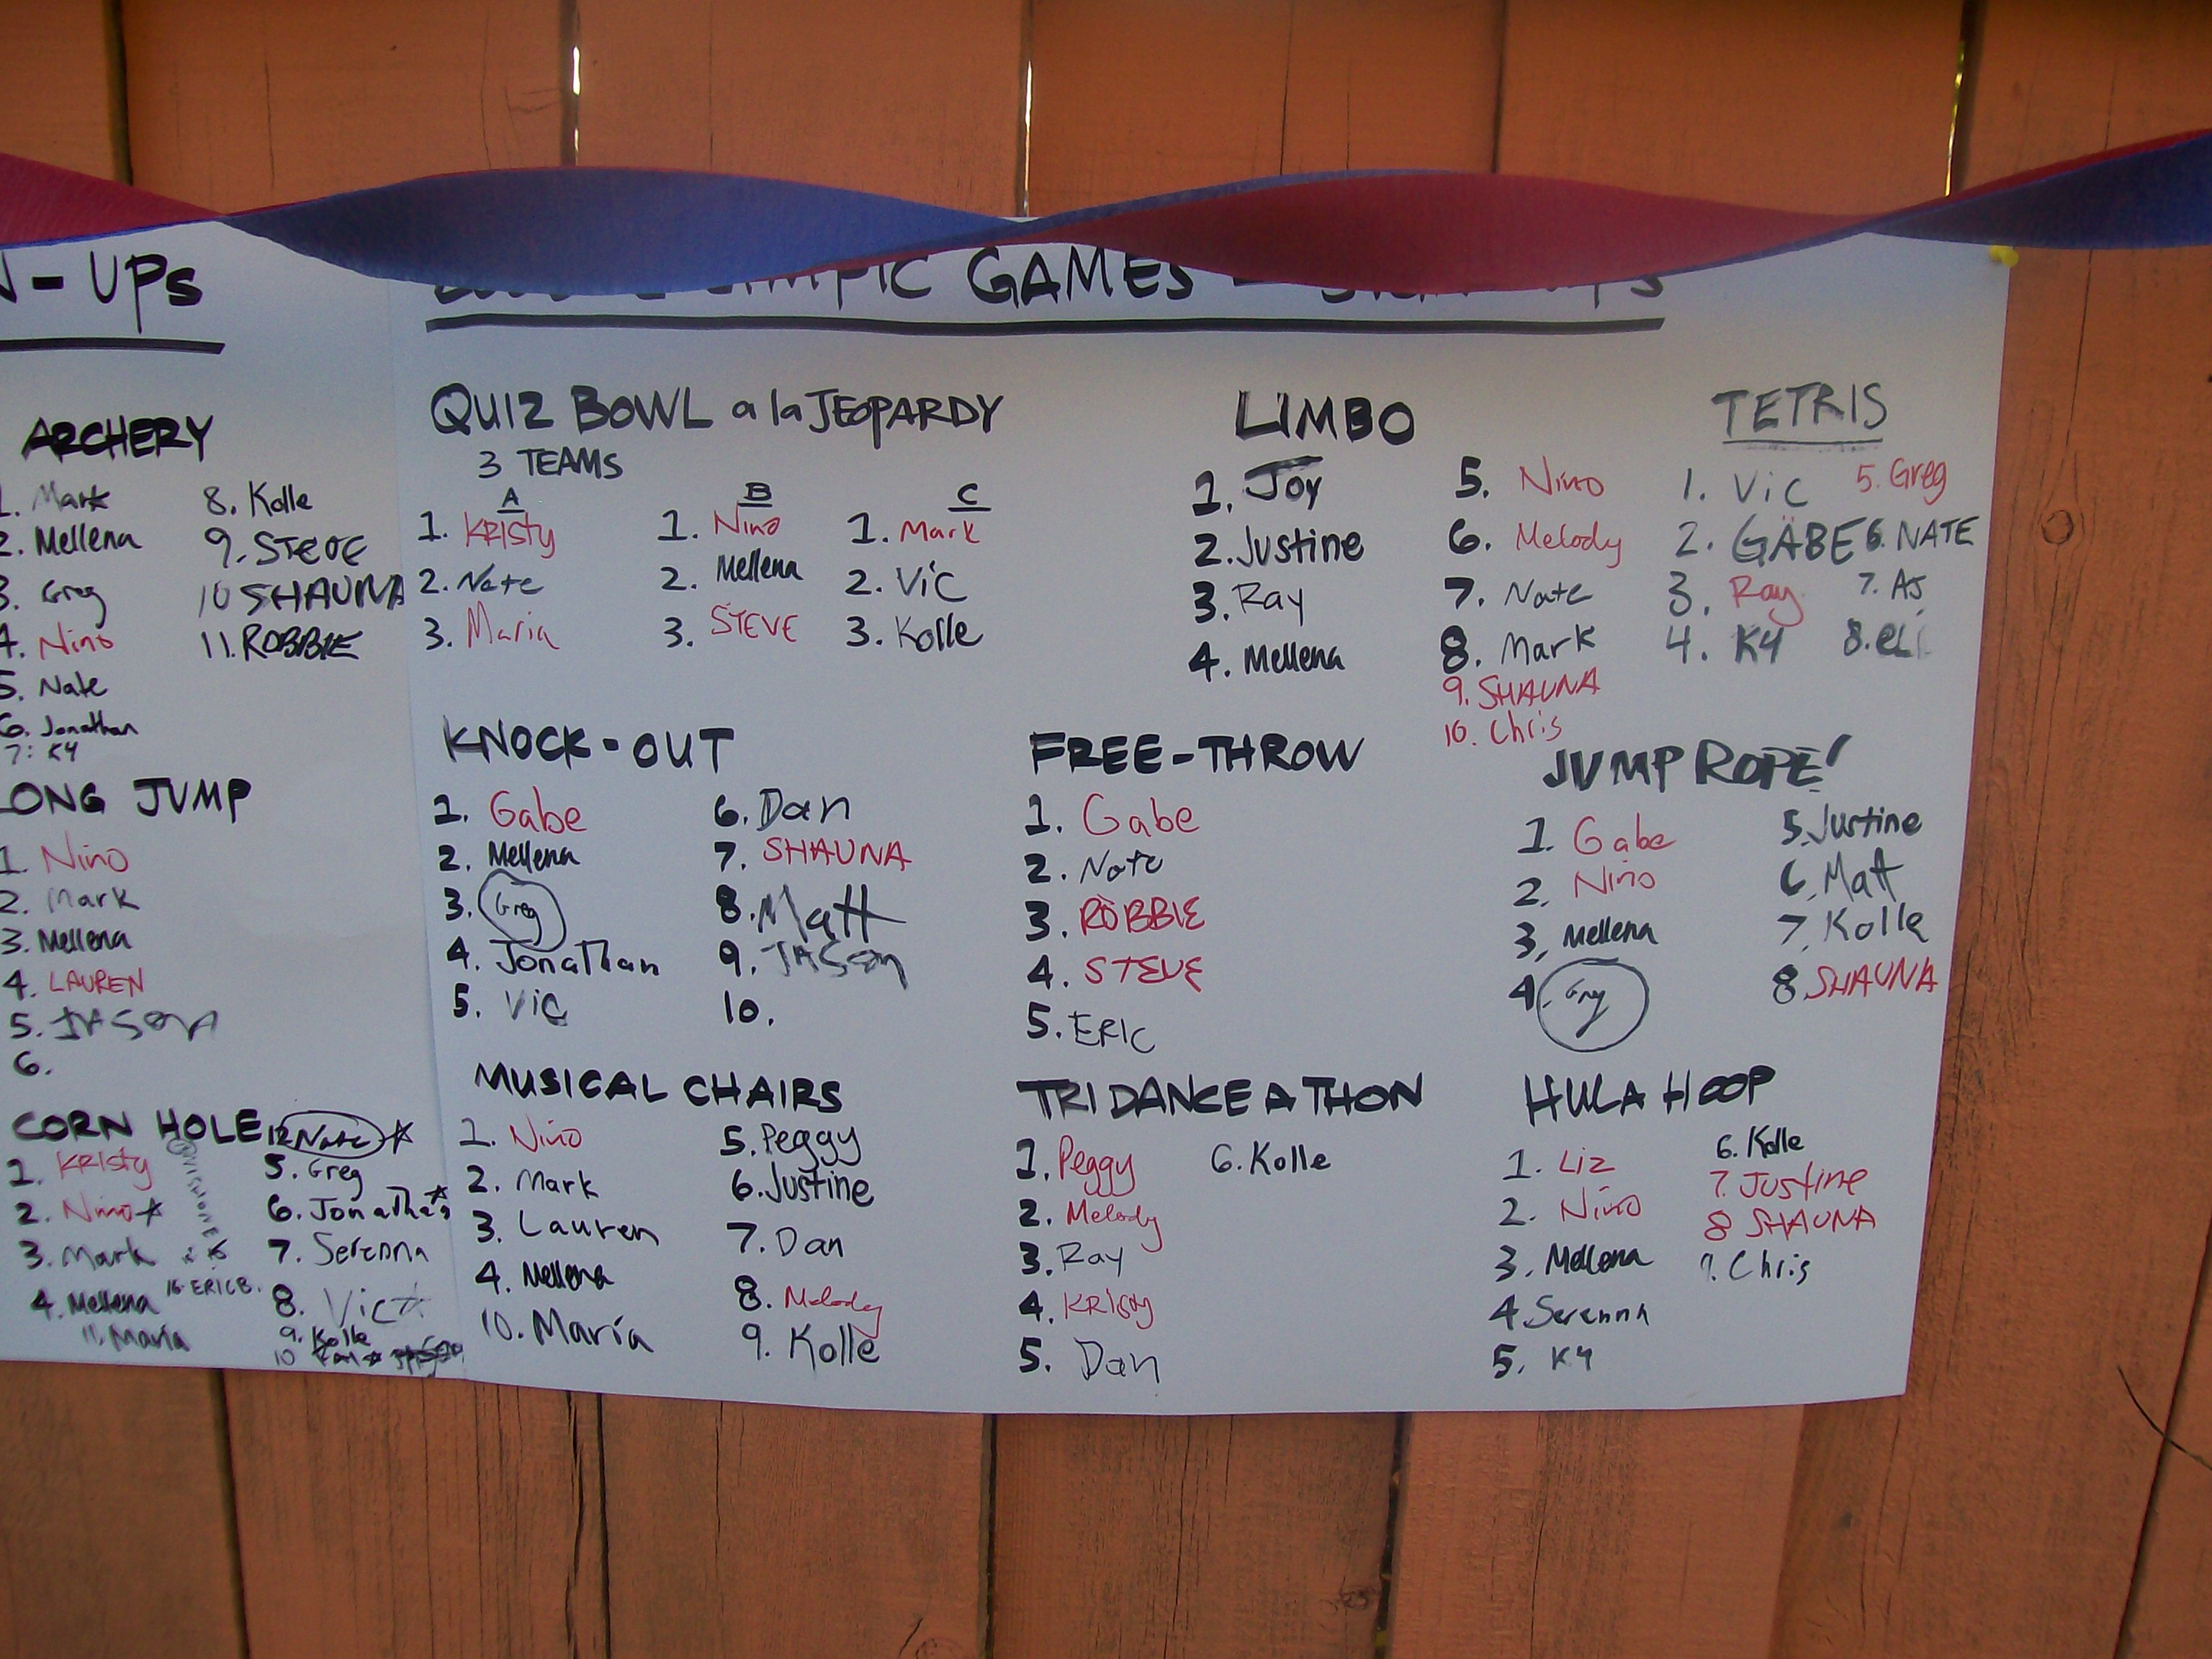 - UPs
MPIC GAMES -
ARCHERY
1. Mark
2. Mellena
3. Greg
4. Nino
5. Nate
6. Jonathan
7: K4
8. Kolle
9. STEVE
10 SHAUNA
11. ROBBIE
LONG JUMP
1. Nino
2. Mark
3. Mellena
4. LAUREN
5. JASON
6.
CORN HOLE
12 Nate
1. KRISTY
2. Nino
3. Mark
4. Mellena
11. Maria
16. ERICB.
5. Greg
6. Jonathan
7. Serenna
8. Vic
9. Kolle
10
QUIZ BOWL a la JEOPARDY
3 TEAMS
A
1. KRISTY
2. Nate
3. Maria
B
1. Nino
2. Mellena
3. STEVE
C
1. Mark
2. Vic
3. Kolle
LIMBO
1. Joy
2. Justine
3. Ray
4. Mellena
5. Nino
6. Melody
7. Nate
8. Mark
9. SHAUNA
10. Chris
TETRIS
1. Vic
2. GÄBE
3. Ray
4. K4
5. Greg
6. NATE
7. AJ
8. eLi
KNOCK-OUT
1. Gabe
2. Mellena
3. Greg
4. Jonathan
5. Vic
6. Dan
7. SHAUNA
8. Matt
9. JASON
10.
FREE-THROW
1. Gabe
2. Nate
3. ROBBIE
4. STEVE
5. ERIC
JUMP ROPE!
1. Gabe
2. Nino
3. Mellena
4. Greg
5. Justine
6. Matt
7. Kolle
8. SHAUNA
MUSICAL CHAIRS
1. Nino
2. Mark
3. Lauren
4. Mellena
10. Maria
5. Peggy
6. Justine
7. Dan
8. Melody
9. Kolle
TRI DANCE A THON
1. Peggy
2. Melody
3. Ray
4. KRISTY
5. Dan
6. Kolle
HULA HOOP
1. Liz
2. Nino
3. Mellena
4 Serenna
5. K4
6. Kolle
7. Justine
8 SHAUNA
9. Chris